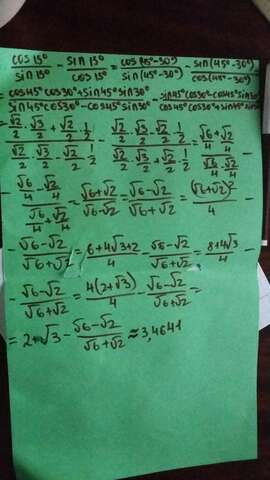 cos15°/sin15° - sin15°/cos15° = cos(45°-30°)/sin(45°-30°) - sin(45°-30°)/cos(45°-30°)
= cos45°cos30°+sin45°sin30°/sin45°cos30°-cos45°sin30° - sin45°cos30°-cos45°sin30°/cos45°cos30°+sin45°sin30°
= √2/2·√3/2+√2/2·1/2 / √2/2·√3/2-√2/2·1/2 - √2/2·√3/2-√2/2·1/2 / √2/2·√3/2+√2/2·1/2 = √6/4+√2/4 / √6/4-√2/4
- √6/4-√2/4 / √6/4+√2/4 = √6+√2/√6-√2 = √6-√2/√6+√2 = (√6+√2)²/4 -
- √6-√2/√6+√2 = 6+4√3+2/4 - √6-√2/√6+√2 = 8+4√3/4 -
- √6-√2/√6+√2 = 4(2+√3)/4 - √6-√2/√6+√2 =
= 2+√3 - √6-√2/√6+√2 ≈ 3,4641